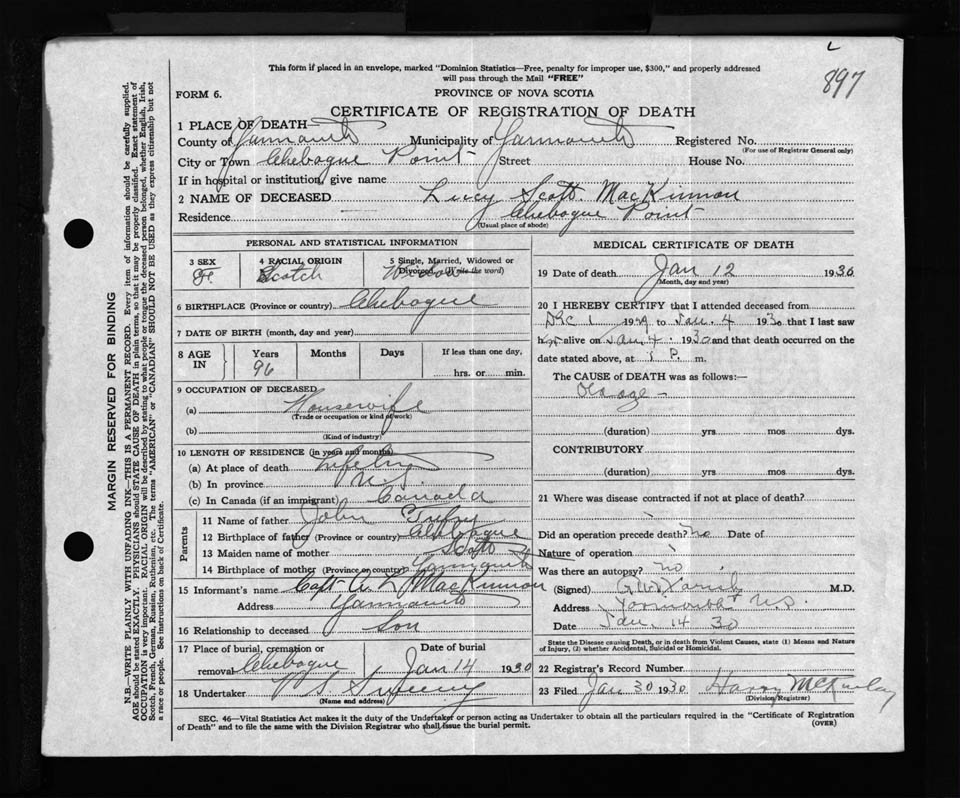 897
This form if placed in an envelope, marked "Dominion Statistics—Free, penalty for improper use, $300," and properly addressed
will pass through the Mail "FREE"
FORM 6.
PROVINCE OF NOVA SCOTIA
CERTIFICATE OF REGISTRATION OF DEATH
1 PLACE OF DEATH
County of Yarmouth Municipality of Yarmouth Registered No.
(For use of Registrar General only)
City or Town Chebogue Point Street House No.
If in hospital or institution, give name
2 NAME OF DECEASED Lucy Scott MacKinnon
Residence Chebogue Point
(Usual place of abode)
PERSONAL AND STATISTICAL INFORMATION
3 SEX F. 4 RACIAL ORIGIN Scotch 5 Single, Married, Widowed or
Divorced (Write the word) Widow
6 BIRTHPLACE (Province or country) Chebogue
7 DATE OF BIRTH (month, day and year)
8 AGE IN Years Months Days If less than one day,
96 hrs. or min.
9 OCCUPATION OF DECEASED
(a) Housewife
(Trade or occupation or kind of work)
(b)
(Kind of industry)
10 LENGTH OF RESIDENCE (in years and months)
(a) At place of death
(b) In province N.S.
(c) In Canada (if an immigrant) Canada
Parents
11 Name of father John
12 Birthplace of father (Province or country) Chebogue
13 Maiden name of mother Scott
14 Birthplace of mother (Province or country) Yarmouth
15 Informant's name Capt A. L MacKinnon
Address Yarmouth
16 Relationship to deceased Son
17 Place of burial, cremation or Date of burial
removal Chebogue Jan 14 1930
18 Undertaker Sweeny
(Name and address)
MEDICAL CERTIFICATE OF DEATH
19 Date of death Jan 12 1930
(Month, day and year)
20 I HEREBY CERTIFY that I attended deceased from
Dec 1 1929 to Jan. 4 1930 that I last saw
her alive on Jan 4 1930 and that death occurred on the
date stated above, at P. m.
The CAUSE of DEATH was as follows:—
Old age –
(duration) yrs mos dys.
CONTRIBUTORY
(duration) yrs mos dys.
21 Where was disease contracted if not at place of death?
Did an operation precede death? no Date of
Nature of operation
Was there an autopsy? no
(Signed) M.D.
Address Yarmouth N.S.
Date Jan. 14 30
State the Disease causing Death, or in death from Violent Causes, state (1) Means and Nature
of Injury, (2) whether Accidental, Suicidal or Homicidal.
22 Registrar's Record Number
23 Filed Jan 30 1930 Harry McKinlay
(Division Registrar)
SEC. 46—Vital Statistics Act makes it the duty of the Undertaker or person acting as Undertaker to obtain all the particulars required in the "Certificate of Registration
of Death" and to file the same with the Division Registrar who shall issue the burial permit.
(OVER)
MARGIN RESERVED FOR BINDING
N.B.—WRITE PLAINLY WITH UNFADING INK—THIS IS A PERMANENT RECORD. Every item of information should be carefully supplied.
AGE should be stated EXACTLY. PHYSICIANS should STATE CAUSE OF DEATH in plain terms, so that it may be properly classified. Exact statement of
OCCUPATION is very important. RACIAL ORIGIN will be described by stating to what people or tongue the deceased person belonged, whether English, Irish,
Scotch, French, German, Russian, Ruthenian, etc. The terms "AMERICAN" or "CANADIAN" SHOULD NOT BE USED as they express citizenship but not
a race or people. See instructions on back of Certificate.